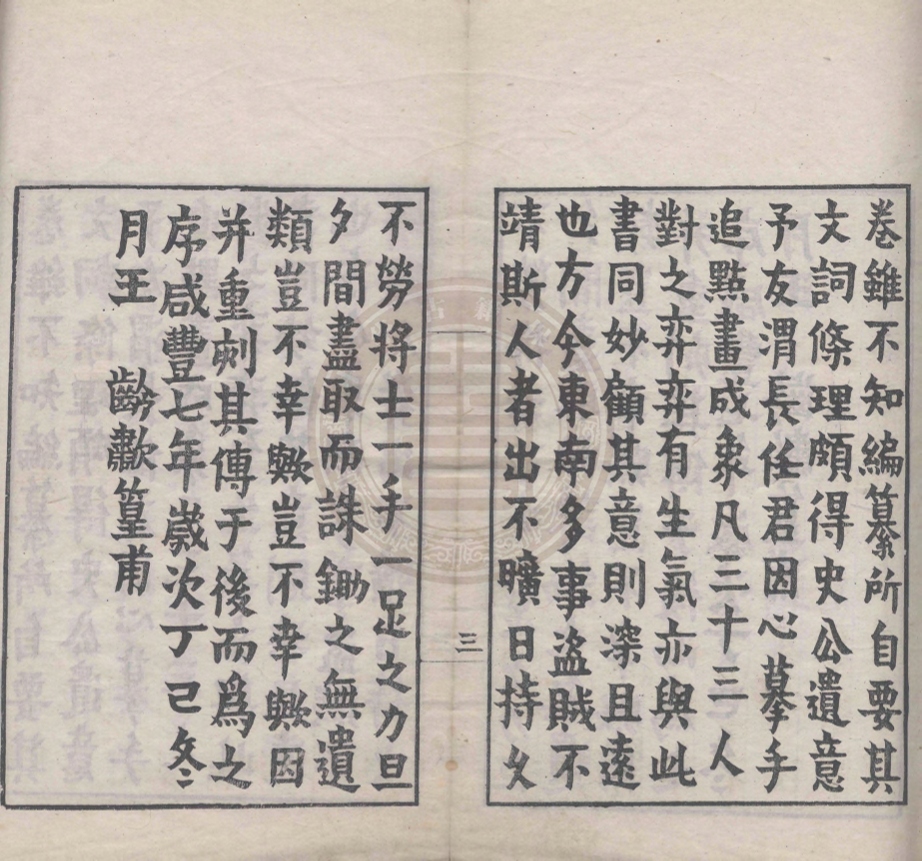 卷雖不知編纂所自要其
文詞條理頗得史公遺意
予友渭長任君因心摹手
追點畫成象凡三十三人
對之弈弈有生氣亦與此
書同妙顧其意則深且遠
也方今東南多事盜賊不
靖斯人者出不曠日持久
三
不勞將士一手一足之力旦
夕間盡取而誅鋤之無遺
類豈不幸歟豈不幸歟因
并重刻其傳于後而爲之
序咸豐七年歲次丁巳冬
月王齡歗篁甫